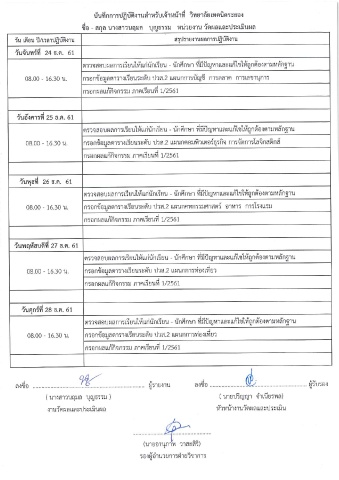 บันทึกการปฏิบัติงานสำหรับเจ้าหน้าที่ วิทยาลัยเทคนิคระยอง
ชื่อ - สกุล นางสาวนฤมล บุญธรรม หน่วยงาน วัดผลและประเมินผล
วัน เดือน ปี/เวลาปฏิบัติงาน สรุปรายงานผลการปฏิบัติงาน
วันจันทร์ที่ 24 ธ.ค. 61
08.00 - 16.30 น. ตรวจสอบผลการเรียนให้แก่นักเรียน - นักศึกษา ที่มีปัญหาและแก้ไขให้ถูกต้องตามหลักฐาน
กรอกข้อมูลตารางเรียนระดับ ปวส.2 แผนกการบัญชี การตลาด การเลขานุการ
กรอกผลแก้กิจกรรม ภาคเรียนที่ 1/2561
วันอังคารที่ 25 ธ.ค. 61
08.00 - 16.30 น. ตรวจสอบผลการเรียนให้แก่นักเรียน - นักศึกษา ที่มีปัญหาและแก้ไขให้ถูกต้องตามหลักฐาน
กรอกข้อมูลตารางเรียนระดับ ปวส.2 แผนกคอมพิวเตอร์ธุรกิจ การจัดการโลจิสติกส์
กรอกผลแก้กิจกรรม ภาคเรียนที่ 1/2561
วันพุธที่ 26 ธ.ค. 61
08.00 - 16.30 น. ตรวจสอบผลการเรียนให้แก่นักเรียน - นักศึกษา ที่มีปัญหาและแก้ไขให้ถูกต้องตามหลักฐาน
กรอกข้อมูลตารางเรียนระดับ ปวส.2 แผนกคหกรรมศาสตร์ อาหาร การโรงแรม
กรอกผลแก้กิจกรรม ภาคเรียนที่ 1/2561
วันพฤหัสบดีที่ 27 ธ.ค. 61
08.00 - 16.30 น. ตรวจสอบผลการเรียนให้แก่นักเรียน - นักศึกษา ที่มีปัญหาและแก้ไขให้ถูกต้องตามหลักฐาน
กรอกข้อมูลตารางเรียนระดับ ปวส.2 แผนกการท่องเที่ยว
กรอกผลแก้กิจกรรม ภาคเรียนที่ 1/2561
วันศุกร์ที่ 28 ธ.ค. 61
08.00 - 16.30 น. ตรวจสอบผลการเรียนให้แก่นักเรียน - นักศึกษา ที่มีปัญหาและแก้ไขให้ถูกต้องตามหลักฐาน
กรอกข้อมูลตารางเรียนระดับ ปวส.2 แผนกการท่องเที่ยว
กรอกผลแก้กิจกรรม ภาคเรียนที่ 1/2561
ลงชื่อ ผู้รายงาน ลงชื่อ ผู้รับรอง
( นางสาวนฤมล บุญธรรม ) ( นายปริญญา จำเนียรพล )
งานวัดผลและประเมินผล หัวหน้างานวัดผลและประเมิน
รองผู้อำนวยการฝ่ายวิชาการ